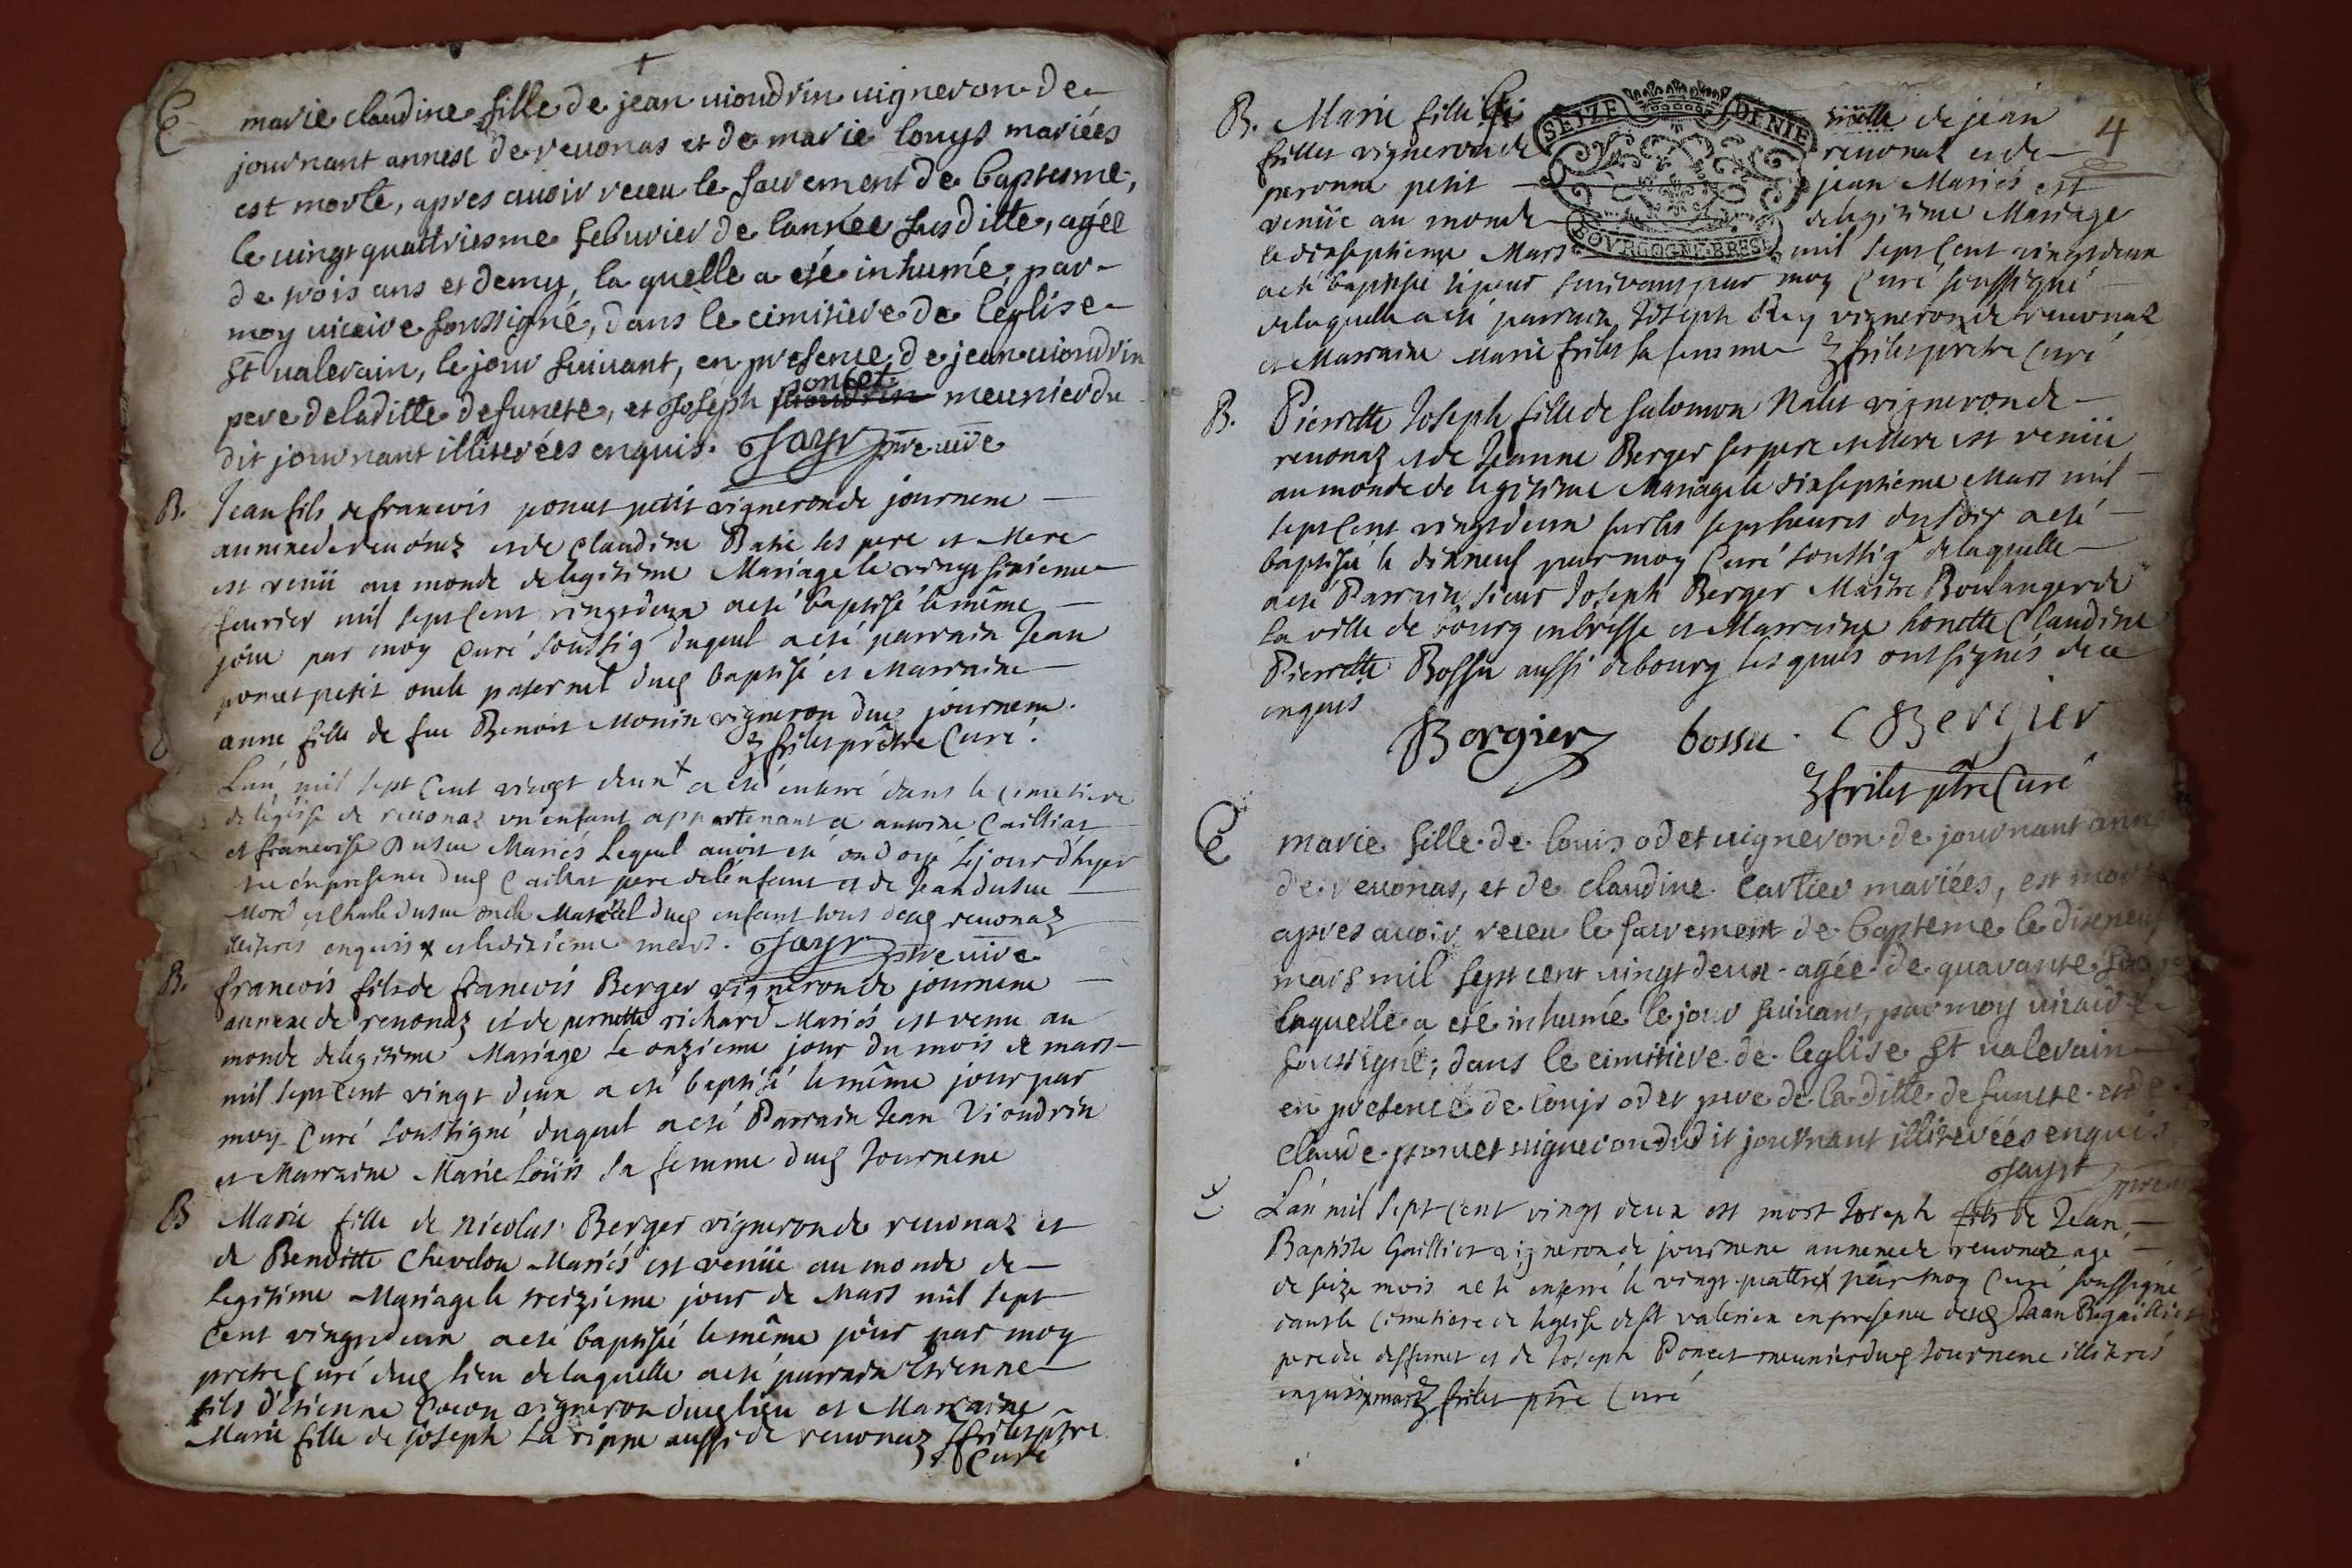 E
marie claudine fille de jean uiondrin uigneron de
journant annexe de reuonas et de marie louys mariées
est morte, apres auoir receu le sacrement de baptesme,
le uingt quattriesme feburier de lannée susditte, agée
de trois ans et demy, la quelle a eté inhumée par
moy uicaire soussigné, dans le cimitiere de léglise
St ualerain, le jour suiuant, en presence de jean uiondrin
pere de laditte defuncte, et joseph poncet meunier du
dit journant illiterées enquis. Jayr pre uire
B. Jean fils de francois poncet petit vigneron de journene
annexe de reuonaz et de Claudine Batie ses pere et Mere
est venü au monde de legitime Mariage le vingt sixieme
feurier mil sept Cent vingt deux a eté baptisé le même
jour par moy Curé soussig duquel a eté parrain Jean
poncet petit oncle paternel dud baptisé et Marraine
anne fille de feu Benoit Monin vigneron dud journene.
frilet prêtre Curé.
Lan mil sept Cent vingt deux + a eté enterré dans le cimetiere
de léglise de reuonaz un enfant appartenant a antoine Cailliat
et francoise Dutue Mariés Lequel auoit eté ondoyé le jour dhyer
en presence dud Caillat pere de lenfant et de Jean dutue
More et Charle dutue oncle Maternel dud enfant tous de reuonaz
illiterés enquis + et le dixieme mars. Jayr pre uire
B. francois fils de francois Berger vigneron de journene
annexe de reuonaz et de pernette richard Mariés est venu au
monde de legitime Mariage Le onzieme jour du mois de mars
mil sept Cent vingt deux a eté baptisé le même jour par
moy Curé soussigné duquel a eté Parrain Jean Viondrin
et Marraine Marie Loüis sa femme dud Journene
B Marie fille de nicolas Berger vigneron de reuonaz et
de Benoitte Chevelou Mariés est venüe au monde de
legitime Mariage le treizieme jour de Mars mil sept
Cent vingt deux a eté baptisée le même jour par moy
pretre Curé dud lieu de laquelle a eté parrain Etienne
fils d'Etienne Cocon vigneron dud lieu et Marraine
Marie fille de joseph La rippe aussi de reuonaz frilet ptre
Curé
4
SEIZE DENIE
BOVRGOGNE BRES
B. Marie fille de jean
frillet vigneron de reuonaz et de
peronne petit jean Mariés est
venüe au monde de legitime Mariage
le dixseptieme Mars mil sept Cent vingt deux
a eté baptisée le jour suivant par moy Curé soussigné
de laquelle a eté parrain Joseph Rey vigneron de reuonaz
et Marraine Marie frilet sa femme frilet pretre Curé
B. Pierrette Joseph fille de Salomon Nalet vigneron de
reuonaz et de Jeanne Berger ses pere et Mere est venüe
au monde de legitime Mariage le dixseptieme Mars mil
sept Cent vingt deux sur les sept heures du soir a eté
baptisée le dixneuf par moy Curé soussig de laquelle
a eté Parrain sieur Joseph Berger Maitre Boulanger de
la ville de bourg en bresse et Marraine honette Claudine
Pierrette Bossu aussi de bourg lesquels ont signés de ce
enquis
Borgier bossu. C Bergier
frilet ptre Curé
E
marie fille de louis odet uigneron de journant ann
de reuonas, et de claudine Cartier mariées, est morte
apres auoir receu le sacrement de bapteme le dixneuf
mars mil sept cent uingt deux agée de quarante
laquelle a eté inhumée le jour suiuant, par moy uicaire
soussigné; dans le cimitiere de leglise St ualerain
en presence de louys odet pere de laditte defuncte et de
claude poncet uigneron dudit journant illiterées enquis
Jayr pre
Lan mil sept Cent vingt deux est mort Joseph fils de Jean
Baptiste Gailliot vigneron de journene annexe de reuonaz agé
de seize mois a eté enterré le vingt quattre + par moy Curé soussigné
dans le Cimetiere de leglise de st valerien en presence dud Jean B gaillict
pere du deffunct et de Joseph Poncet meunier dud Journene illiterés
enquis + mars frilet ptre Curé